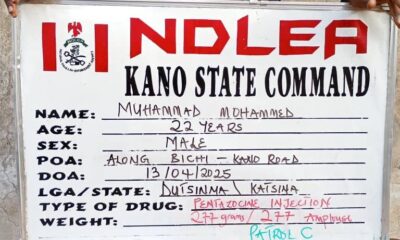 NDLEA
KANO STATE COMMAND
NAME: MUHAMMAD MOHAMMED
AGE: 22 YEARS
SEX: MALE
POA: ALONG BICHI - KANO ROAD
DOA: 13/04/2025
LGA/STATE: DUTSINMA \ KATSINA
TYPE OF DRUG: PENTAZOCINE INJECTION
WEIGHT: 277 grams / 277 Ampoules
PATROL C